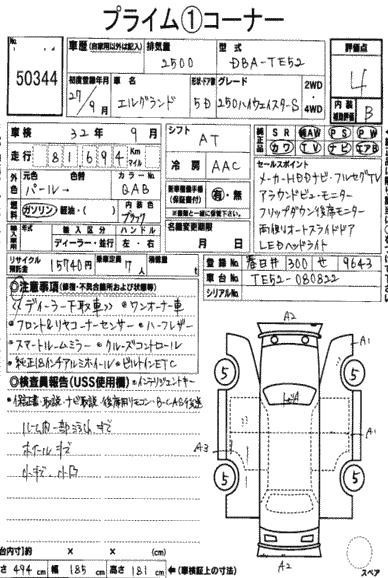 プライム①コーナー
No. 50344
車歴 (自家用以外は記入) 排気量 2500 型式 DBA-TE52 評価点 4
初度登録年月 27/9月 車名 エルグランド 形状・ドア数 5D グレード 250ハイウェイスターS 2WD・4WD 内装 補助評価 B
車検 32年 9月 シフト AT 純正品 SR 純AW PS PW
カワ TV ナビ エアB
走行 81694 Km マイル 冷房 AAC セールスポイント
メーカーHDDナビ・フルセグTV
外色 元色 パール→ 色替 カラーNo. QAB アラウンドビューモニター
燃料 ガソリン・軽油・( ) 内装色 ブラック 新車整備手帳(保証書) 有・無 フリップダウン後席モニター
※書類と一緒に保管下さい。 両側オートスライドドア
輸入車 年式 輸入区分 ハンドル 名義変更期限 LEDヘッドライト
ディーラー・並行 左・右 月 日
リサイクル預託金 15740円 乗車定員 7人 積載量 t 登録No. 春日井 300 せ 9643
車台No. TE52-080822
シリアルNo.
◎注意事項 (修復・不具合箇所および状態等)
《ディーラー下取車》 •ワンオーナー車
•フロント&リヤコーナーセンサー •ハーフレザー
•スマートルームミラー •クルーズコントロール
•純正18インチアルミホイール •ビルトインETC
◎検査員報告 (USS使用欄) •インテリジェントキー
•保証書・取説・ナビ取説・後席用リモコン・B-CAS後送
ルーム内一部汚れ、キズ
ホイールキズ
小キズ、小凹
A2
A1
5 5
A3 A1
5 5
A2
スペア
荷台内寸】約 × × (cm)
長さ 494 cm 幅 185 cm 高さ 181 cm ←(車検証上の寸法)